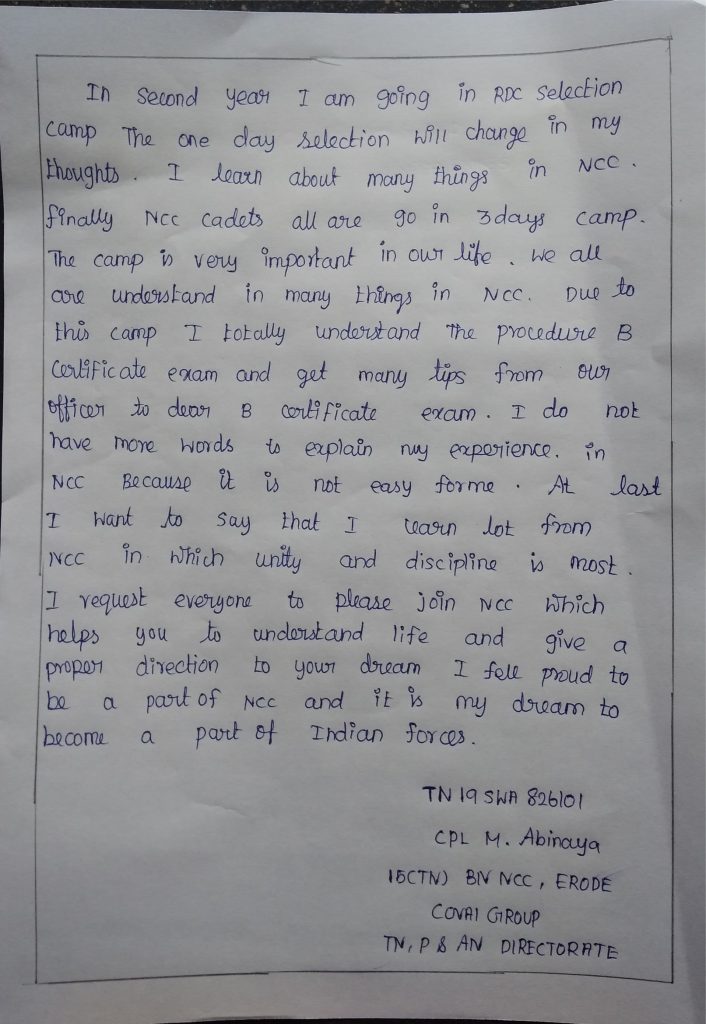 In Second year I am going in RDC Selection
camp The one day selection will change in my
thoughts. I learn about many things in NCC.
finally NCC cadets all are go in 3days camp.
The camp is very important in our life. we all
are understand in many things in NCC. Due to
this camp I totally understand The procedure B
Certificate exam and get many tips from our
officer to dear B certificate exam. I do not
have more words to explain my experience. in
NCC Because it is not easy forme. At last
I want to say that I learn lot from
NCC in which unity and discipline is most.
I request everyone to please join NCC which
helps you to understand life and give a
proper direction to your dream I fell proud to
be a part of NCC and it is my dream to
become a part of Indian forces.
TN 19 SWA 826101
CPL M. Abinaya
15(TN) BN NCC, ERODE
COVAI GROUP
TN, P & AN DIRECTORATE